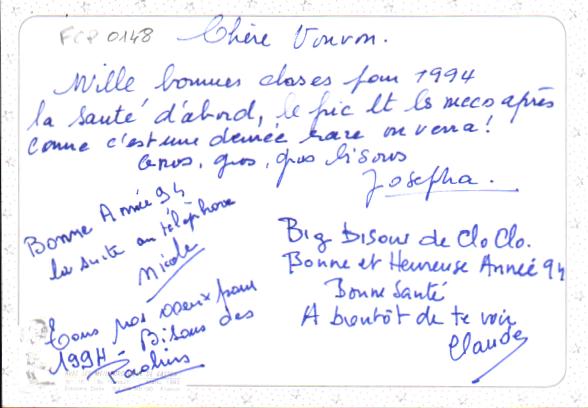 FCP 0148
Chère Vonvon.
Mille bonnes choses pour 1994
la santé d'abord, le fric et les mecs après
comme c'est une denrée rare on verra!
Gros, gros, gros bisous
Josepha.
Bonne Année 94
la suite au téléphone
Nicole
Tous nos voeux pour
1994 - Bisous des
Paolins
Big bisous de CloClo.
Bonne et Heureuse Année 94
Bonne Santé
A bientôt de te voir
Claude